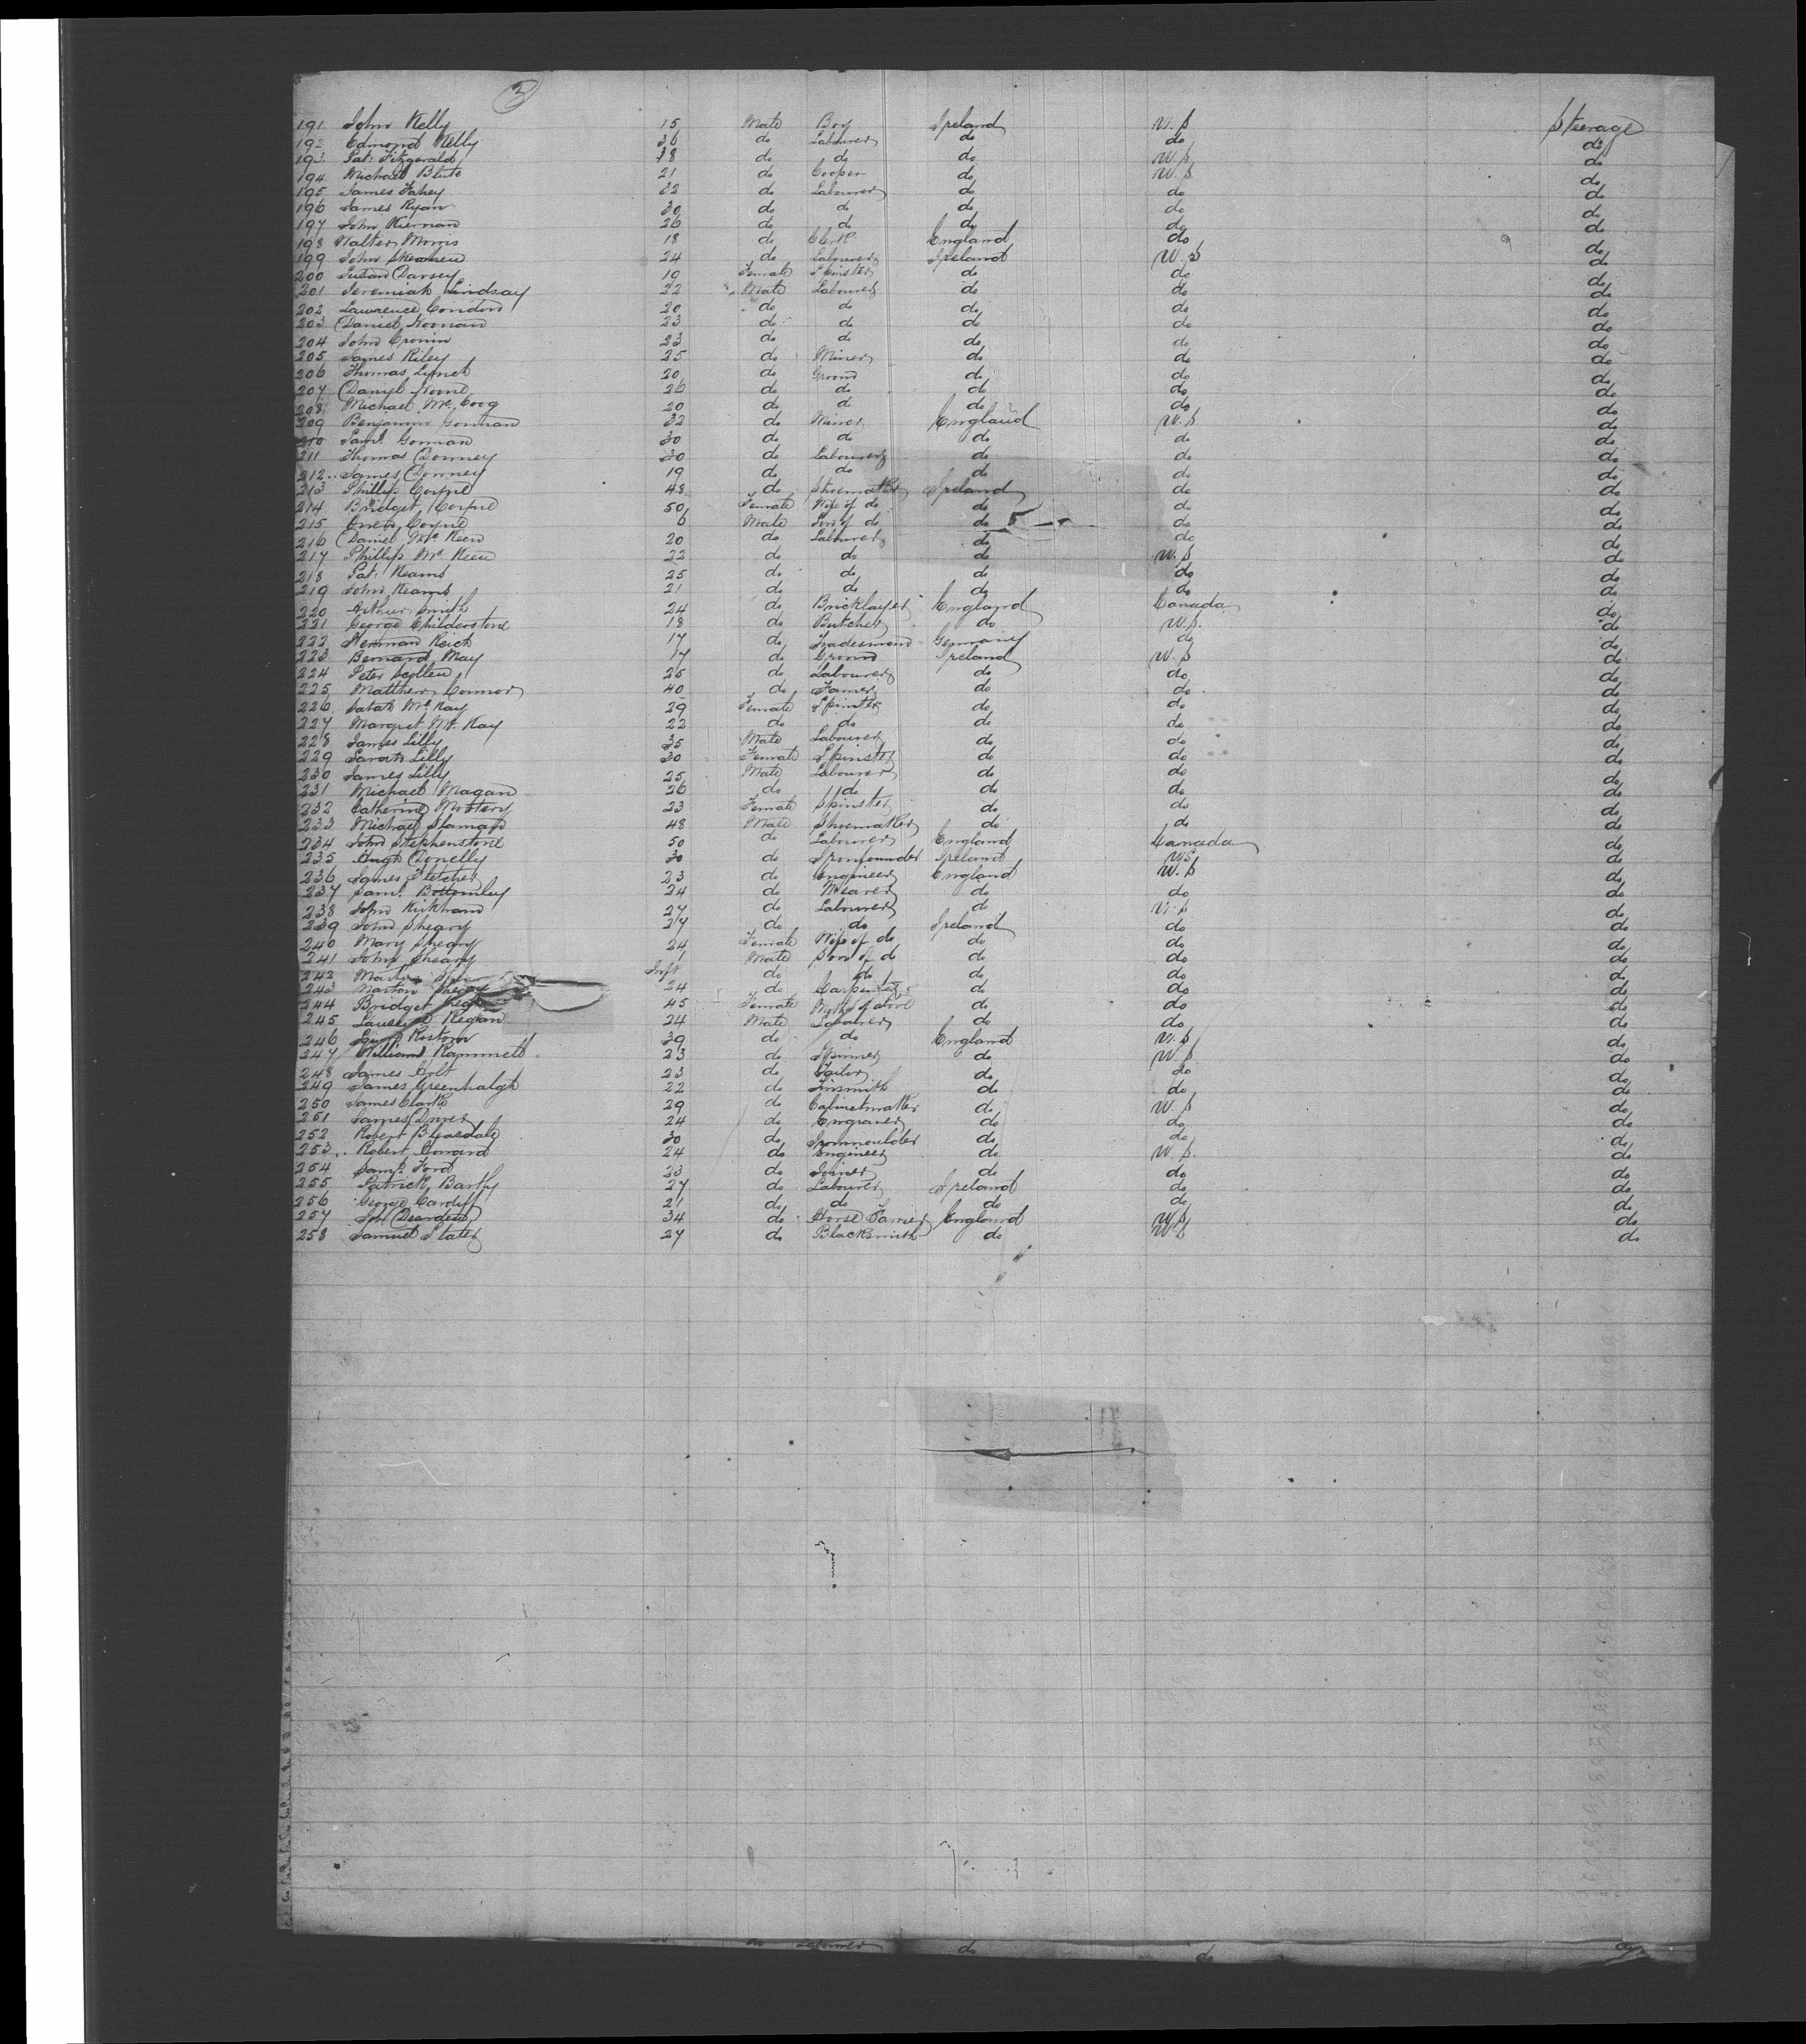 2
191 John Kelly 15 Male Boy Ireland U.S Steerage
192 Edmond Kelly 36 do Labourer do do do
193 Pat: Fitzgerald 18 do do do U.S. do
194 Michael Blute 21 do Cooper do U.S. do
195 James Fahey 32 do Labourer do do do
196 James Ryan 30 do do do do do
197 John Kiernan 26 do do do do do
198 Walter Morris 18 do Clerk England do do
199 John 24 do Labourer Ireland U.S do
200 Susan Darsey 19 Female Spinster do do do
201 Jeremiah Lindsay 22 Male Labourer do do do
202 Lawrence Condon 20 do do do do do
203 Daniel Noonan 23 do do do do do
204 John Cronin 23 do do do do do
205 James Riley 25 do Miner do do do
206 Thomas Lynch 20 do Groom do do do
207 Daniel 26 do do do do do
208 Michael Mc 20 do do do do do
209 Benjamin Gorman 32 do Miner England U.S do
210 Saml. Gorman 30 do do do do do
211 Thomas Downey 30 do Labourer do do do
212 James Downey 19 do do do do do
213 Phillip Coyne 48 do Shoemaker Ireland do do
214 Bridget Coyne 50 Female Wife of do do do do
215 Owen Coyne 6 Male Son of do do 5 do do
216 Daniel Mc Keen 20 do Labourer do do do
217 Phillip Mc Keen 22 do do do U.S do
218 Pat: Keams 25 do do do do do
219 John Keams 21 do do do do do
220 Arthur Smith 24 do Bricklayer England Canada do
221 George Childerstone 18 do Butcher do U.S. do
222 Herman Reich 17 do Tradesman Germany do do
223 Bernard May 17 do Groom Ireland U.S do
224 Peter Scollen 25 do Labourer do do do
225 Matthew Connor 40 do Farmer do do do
226 Sarah Mc Kay 29 Female Spinster do do do
227 Margret Mc Kay 22 do do do do do
228 James Lilly 35 Male Labourer do do do
229 Sarah Lilly 30 Female Spinster do do do
230 James Lilly 25 Male Labourer do do do
231 Michael Magan 26 do do do do do
232 Catherine 23 Female Spinster do do do
233 Michael 48 Male Shoemaker do do do
234 John Stephenstone 50 do Labourer England Canada do
235 Hugh Donelly 30 do Ironfounder Ireland US do
236 James Fletcher 23 do Engineer England U.S do
237 Saml. Bottomley 24 do Weaver do do do
238 John Kirkham 27 do Labourer do U.S do
239 John Sheary 27 do do Ireland do do
240 Mary Sheary 24 Female Wife of do do do do
241 John Sheary 1 Male Son of do do do do
242 Martin Inft do do do do do
243 Martin Sheary 24 do Carpenter do do do
244 Bridget 45 Female Mother of above do do do
245 Regan 24 Male Labourer do do do
246 Ristom 39 do do England U.S do
247 William Rammell 23 do Spinner do U.S do
248 James Holt 23 do Tailor do do do
249 James Greenhalgh 22 do Tinsmith do do do
250 James Clark 29 do Cabinetmaker do U.S do
251 James Driver 24 do Engraver do do do
252 Robert Bleasdale 30 do Ironmoulder do do do
253 Robert 24 do Engineer do U.S. do
254 Saml. Ford 23 do Joiner do do do
255 Patrick Barky 27 do Labourer Ireland do do
256 George Cardiff 21 do do do do do
257 Dearden 34 do Horse Farrier England U.S do
258 Samuel Slater 27 do Blacksmith do U.S do
do Labourer do do do